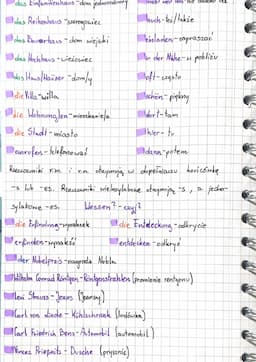 das Einfamilienhaus - dom jednorodzinny
das Reihenhaus - szeregowiec
das Bauernhaus - dom wiejski
das Hochhaus - wieżowiec
das Haus/Häuser - dom/y
die Villa - willa
die Wohnung/en - mieszkanie/a
die Stadt - miasto
anrufen - telefonować
auch - też/także
einladen - zapraszać
in der Nähe - w pobliżu
oft - często
schön - piękny
dort - tam
hier - tu
dann - potem
Rzeczowniki r.m. i r.n. otrzymują w dopełniaczu końcówkę
-s lub -es. Rzeczowniki wielosylabowe otrzymują -s, a jedno-
sylabowe -es. Wessen? - czyj?
die Erfindung - wynalazek die Entdeckung - odkrycie
erfinden - wynaleźć entdecken - odkryć
der Nobelpreis - nagroda Nobla
Wilhelm Conrad Röntgen - Röntgenstrahlen (promienie rentgena)
Levi Strauss - Jeans (jeansy)
Carl von Linde - Kühlschrank (lodówka)
Carl Friedrich Benz - Automobil (automobil)
Vincenz Prießnitz - Dusche (prysznic)